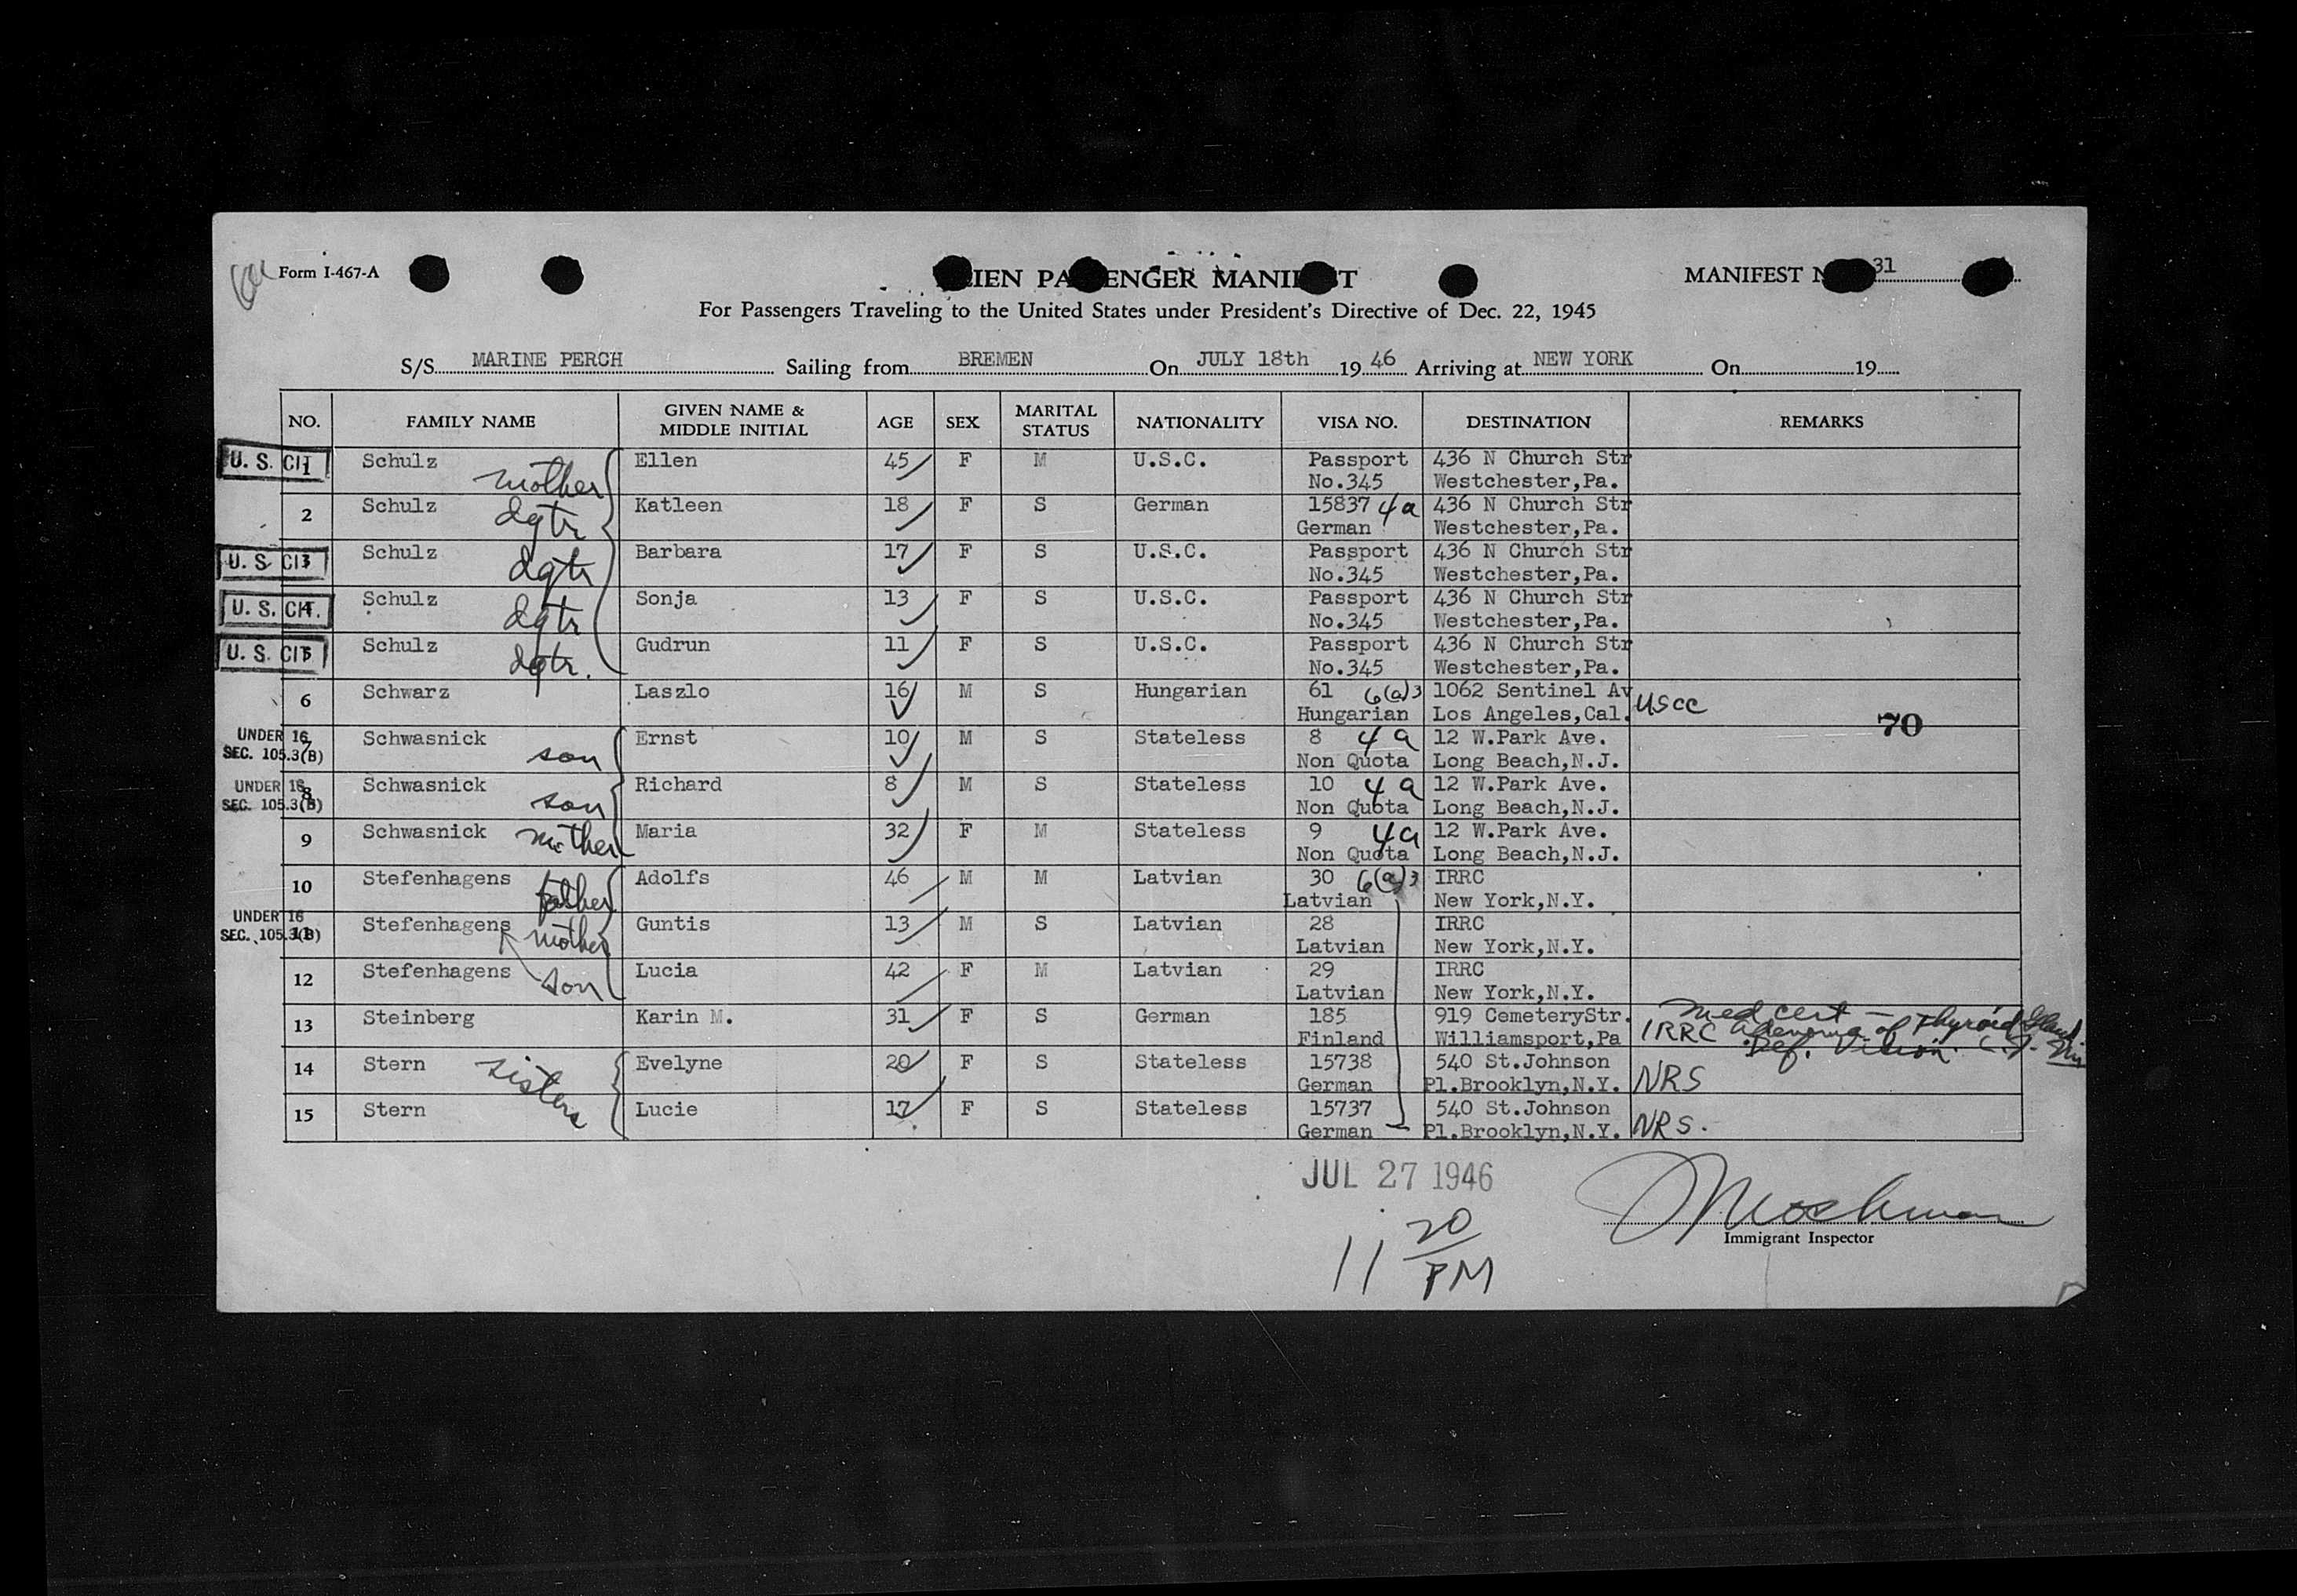 Form I-467-A
ALIEN PASSENGER MANIFEST
MANIFEST NO. 31
For Passengers Traveling to the United States under President's Directive of Dec. 22, 1945
S/S MARINE PERCH Sailing from BREMEN On JULY 18th 19 46 Arriving at NEW YORK On 19
NO. FAMILY NAME GIVEN NAME & MIDDLE INITIAL AGE SEX MARITAL STATUS NATIONALITY VISA NO. DESTINATION REMARKS
U. S. CIT 1 Schulz mother Ellen 45 F M U.S.C. Passport 436 N Church Str
No.345 Westchester,Pa.
2 Schulz dgtr Katleen 18 F S German 15837 4a 436 N Church Str
German Westchester,Pa.
U. S. CIT 3 Schulz dgtr Barbara 17 F S U.S.C. Passport 436 N Church Str
No.345 Westchester,Pa.
U. S. CIT. 4 Schulz dgtr Sonja 13 F S U.S.C. Passport 436 N Church Str
No.345 Westchester,Pa.
U. S. CIT 5 Schulz dgtr. Gudrun 11 F S U.S.C. Passport 436 N Church Str
No.345 Westchester,Pa.
6 Schwarz Laszlo 16 M S Hungarian 61 6(a)3 1062 Sentinel Av USCC
Hungarian Los Angeles,Cal.
70
UNDER 16 7 Schwasnick son Ernst 10 M S Stateless 8 4a 12 W.Park Ave.
SEC. 105.3(B) Non Quota Long Beach,N.J.
UNDER 16 8 Schwasnick son Richard 8 M S Stateless 10 4a 12 W.Park Ave.
SEC. 105.3(B) Non Quota Long Beach,N.J.
9 Schwasnick mother Maria 32 F M Stateless 9 4a 12 W.Park Ave.
Non Quota Long Beach,N.J.
10 Stefenhagens father Adolfs 46 M M Latvian 30 6(a)3 IRRC
Latvian New York,N.Y.
UNDER 16 11 Stefenhagens mother Guntis 13 M S Latvian 28 IRRC
SEC. 105.3(B) Latvian New York,N.Y.
12 Stefenhagens son Lucia 42 F M Latvian 29 IRRC
Latvian New York,N.Y.
13 Steinberg Karin M. 31 F S German 185 919 CemeteryStr. Med cert - Thyroid Gland
Finland Williamsport,Pa IRRC Adenoma of
Def. Vision
14 Stern sisters Evelyne 20 F S Stateless 15738 540 St.Johnson
German Pl.Brooklyn,N.Y. NRS
15 Stern Lucie 17 F S Stateless 15737 540 St.Johnson
German Pl.Brooklyn,N.Y. NRS.
JUL 27 1946
11 20 PM
Immigrant Inspector